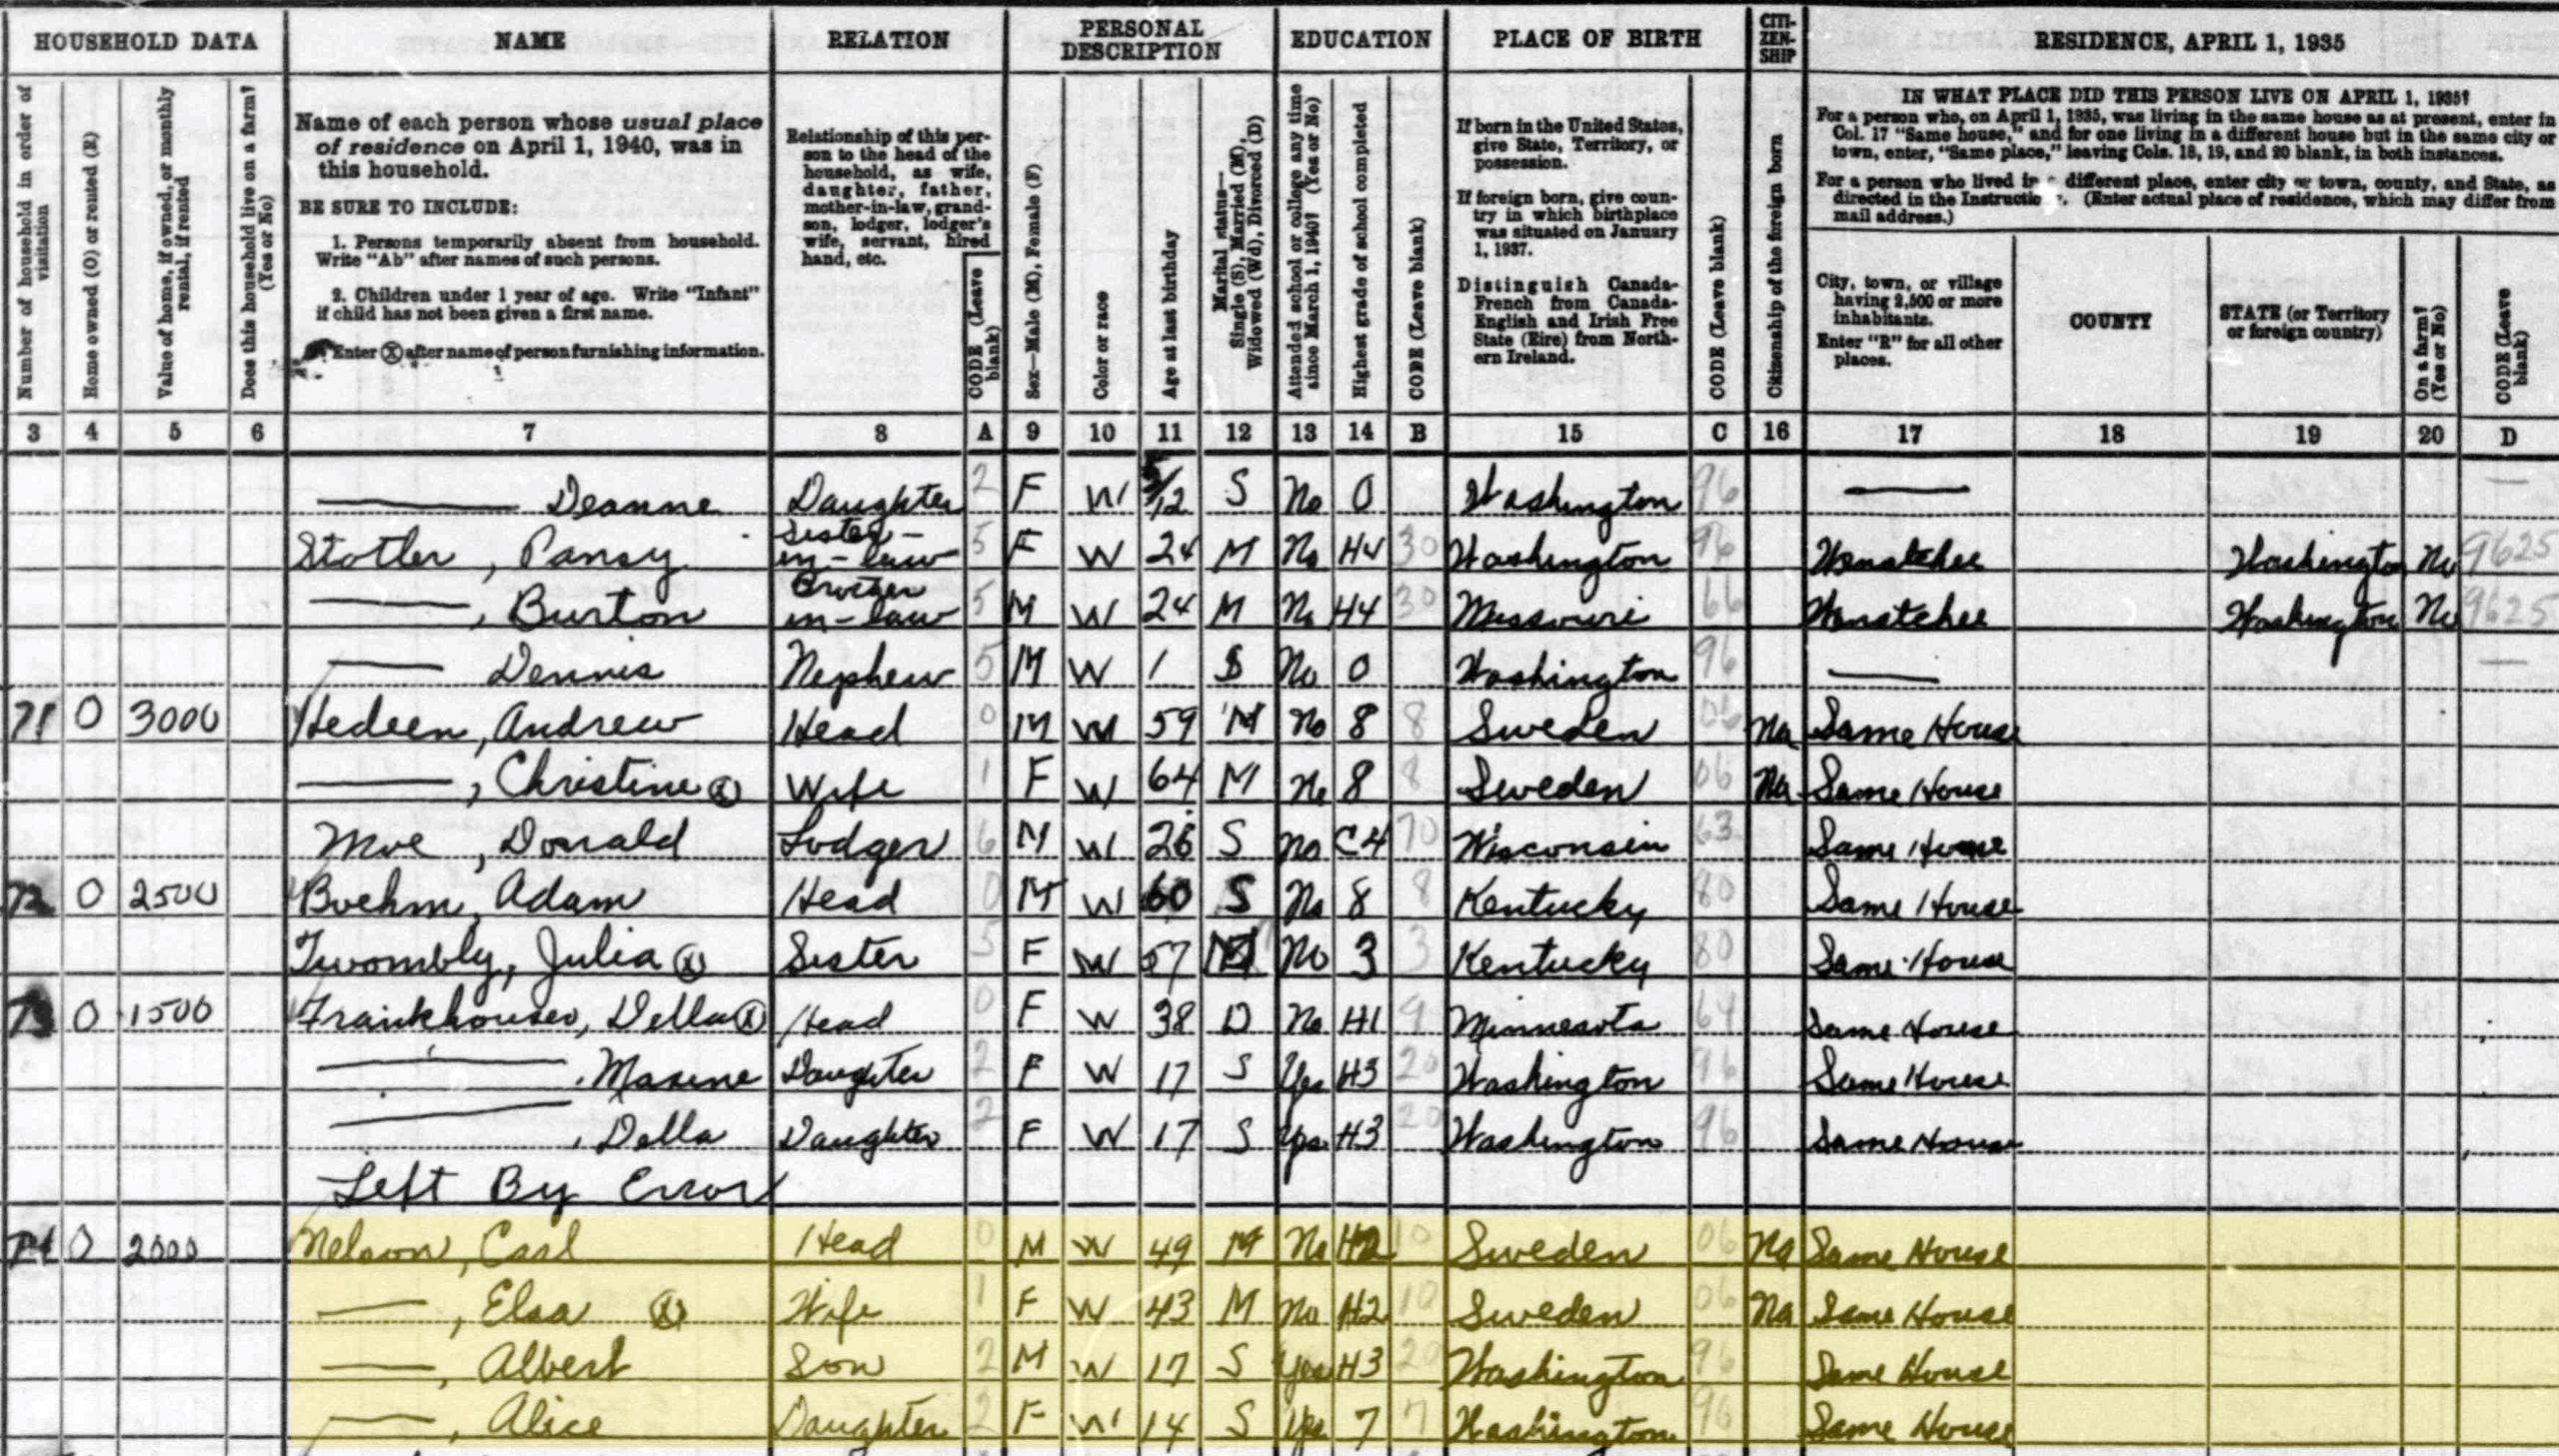 HOUSEHOLD DATA
NAME
RELATION
PERSONAL DESCRIPTION
EDUCATION
PLACE OF BIRTH
CITI-ZEN-SHIP
RESIDENCE, APRIL 1, 1935
Number of household in order of visitation
Home owned (O) or rented (R)
Value of home, if owned, or monthly rental, if rented
Does this household live on a farm? (Yes or No)
Name of each person whose usual place
of residence on April 1, 1940, was in
this household.
BE SURE TO INCLUDE:
1. Persons temporarily absent from household.
Write "Ab" after names of such persons.
2. Children under 1 year of age. Write "Infant"
if child has not been given a first name.
Enter ⓧ after name of person furnishing information.
Relationship of this per-
son to the head of the
household, as wife,
daughter, father,
mother-in-law, grand-
son, lodger, lodger's
wife, servant, hired
hand, etc.
CODE (Leave blank)
Sex—Male (M), Female (F)
Color or race
Age at last birthday
Marital status—
Single (S), Married (M),
Widowed (Wd), Divorced (D)
Attended school or college any time
since March 1, 1940? (Yes or No)
Highest grade of school completed
CODE (Leave blank)
If born in the United States,
give State, Territory, or
possession.
If foreign born, give coun-
try in which birthplace
was situated on January
1, 1937.
Distinguish Canada-
French from Canada-
English and Irish Free
State (Eire) from North-
ern Ireland.
CODE (Leave blank)
Citizenship of the foreign born
IN WHAT PLACE DID THIS PERSON LIVE ON APRIL 1, 1935?
For a person who, on April 1, 1935, was living in the same house as at present, enter in
Col. 17 "Same house," and for one living in a different house but in the same city or
town, enter, "Same place," leaving Cols. 18, 19, and 20 blank, in both instances.
For a person who lived in a different place, enter city or town, county, and State, as
directed in the Instructions. (Enter actual place of residence, which may differ from
mail address.)
City, town, or village
having 2,500 or more
inhabitants.
Enter "R" for all other
places.
COUNTY
STATE (or Territory
or foreign country)
On a farm? (Yes or No)
CODE (Leave blank)
3 4 5 6 7 8 A 9 10 11 12 13 14 B 15 C 16 17 18 19 20 D
—— Deanne Daughter 2 F W /12 S No 0 Washington 96 —
Stotler, Pansy Sister-in-law 5 F W 24 M No H4 30 Washington 96 Wenatchee Washington No 9625
——, Burton Brother in-law 5 M W 24 M No H4 30 Missouri 66 Wenatchee Washington No 9625
—— Dennis Nephew 5 M W 1 S No 0 Washington 96 —
71 O 3000 Hedeen, Andrew Head 0 M W 59 M No 8 8 Sweden 06 Na Same House
——, Christine ⓧ Wife 1 F W 64 M No 8 8 Sweden 06 Na Same House
Moe, Donald Lodger 6 M W 26 S No C4 70 Wisconsin 63 Same House
72 O 2500 Boehm, Adam Head 0 M W 60 S No 8 8 Kentucky 80 Same House
Twombly, Julia ⓧ Sister 5 F W 57 No 3 3 Kentucky 80 Same House
73 O 1500 Frankhouser, Della ⓧ Head 0 F W 38 D No H1 9 Minnesota 64 Same House
——, Maxine Daughter 2 F W 17 S Yes H3 20 Washington 96 Same House
——, Della Daughter 2 F W 17 S Yes H3 20 Washington 96 Same House
Left By Error
74 O 2000 Nelson, Carl Head 0 M W 49 M No H2 10 Sweden 06 Na Same House
——, Elsa ⓧ Wife 1 F W 43 M No H2 10 Sweden 06 Na Same House
——, Albert Son 2 M W 17 S Yes H3 20 Washington 96 Same House
——, Alice Daughter 2 F W 14 S Yes 7 7 Washington 96 Same House